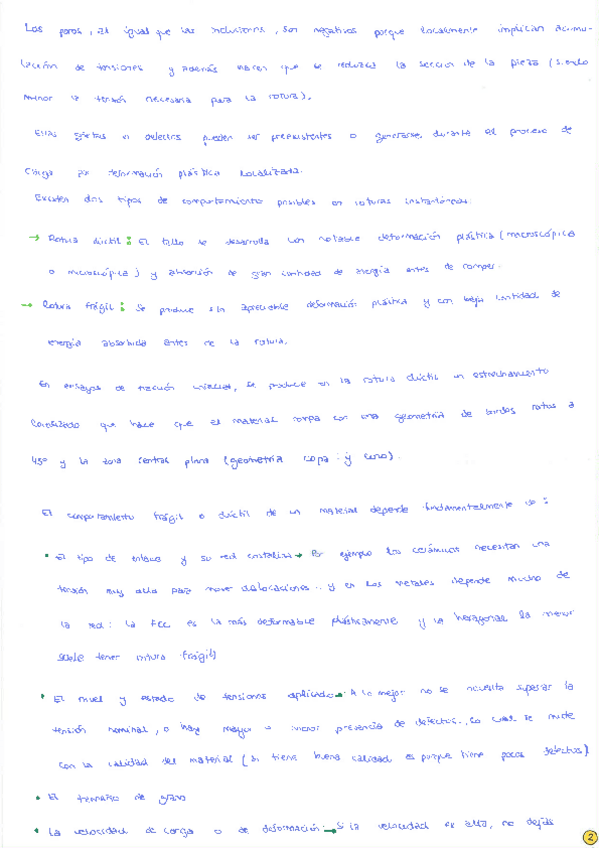 Los poros, al igual que las inclusiones, son negativos porque localmente implican acumu-
lación de tensiones y además hacen que se reduzca la sección de la pieza (siendo
menor la tensión necesaria para la rotura).
Estas grietas o defectos pueden ser preexistentes o generarse durante el proceso de
carga por deformación plástica localizada.
Existen dos tipos de comportamiento posibles en roturas instantáneas:
→ Rotura dúctil: El fallo se desarrolla con notable deformación plástica (macroscópica
o microscópica) y absorción de gran cantidad de energía antes de romper.
→ Rotura frágil: Se produce sin apreciable deformación plástica y con baja cantidad de
energía absorbida antes de la rotura.
En ensayos de tracción uniaxial, se produce en la rotura dúctil un estrechamiento
localizado que hace que el material rompa con una geometría de bordes rotos a
45º y la zona central plana (geometría copa y cono).
El comportamiento frágil o dúctil de un material depende fundamentalmente de:
• El tipo de enlace y su red cristalina → Por ejemplo los cerámicos necesitan una
tensión muy alta para mover dislocaciones.. y en los metales depende mucho de
la red: la FCC es la más deformable plásticamente y la hexagonal la menor
suele tener rotura frágil)
• El nivel y estado de tensiones aplicado → A lo mejor no se necesita superar la
tensión nominal, o hay mayor o menor presencia de defectos.. lo cual se mide
con la calidad del material (si tiene buena calidad es porque tiene pocos defectos)
• El tamaño de grano
• La velocidad de carga o de deformación: → Si la velocidad es alta, no dejas
2